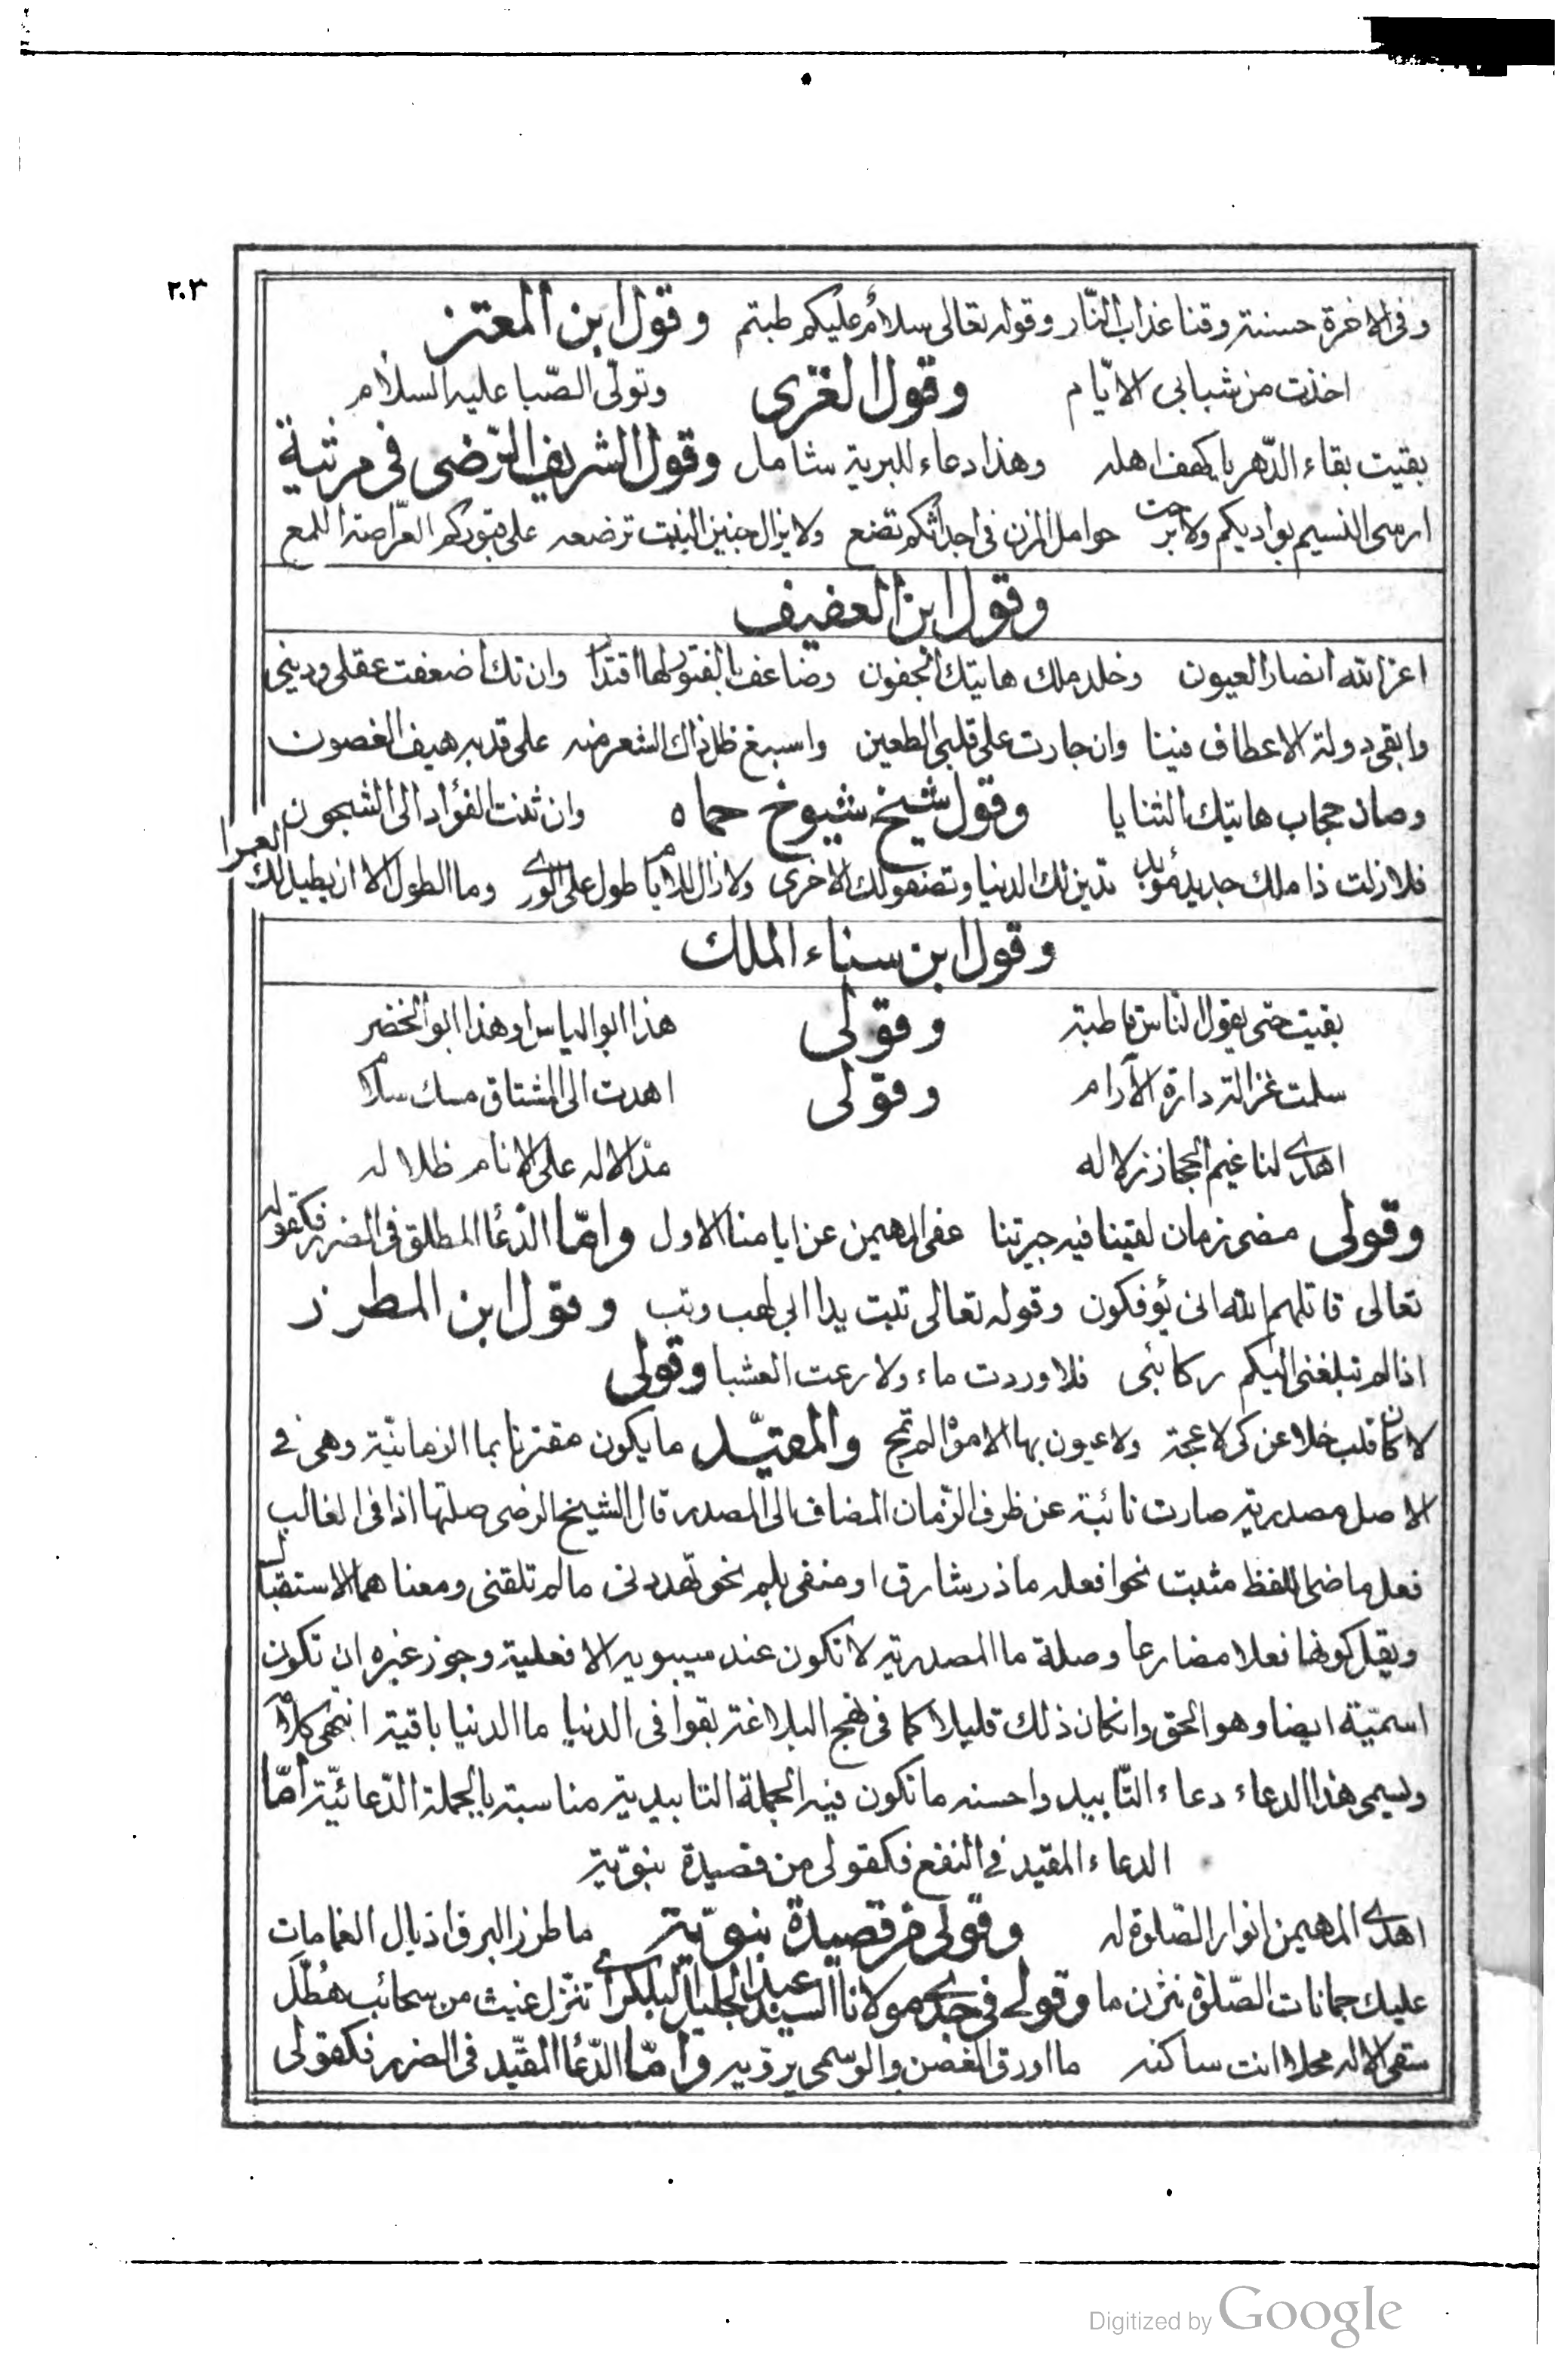 ٢٠٣
وفى الاخرة حسنة وقنا عذاب النّار وقوله تعالى سلام عليكم طبتم وقول ابن المعتز
اخذت من شبابى الايّام وقول الغزى وتولّى الصّبا عليه السلام
بقيت بقاء الدّهر يا كهف اهله وهذا دعاء للبرية شامل وقول الشريف الرّضى فى مرثية
ارسى النسيم بواديكم ولا برحت حوامل المزن فى اجداثكم تضع ولا يزال جنين النبت ترضعه على قبوركم العرّاصة اللمع
وقول ابن العفيف
اعز الله انصار العيون وخلد ملك هاتيك الجفون وضاعف بالفتور لها اقتدارا وان تك اضعفت عقلى ودينى
وابقى دولة الاعطاف فينا وان جارت على قلبى الطعين واسبغ ظل ذاك الشعر منه على قد به هيف الغصون
وصان حجاب هاتيك الثنايا وقول شيخ شيوخ حماه وان ثنت الفؤاد الى الشجون
فلا زلت ذا ملك جديد مؤبد تدين لك الدنيا وتصفو لك الاخرى ولا زال للايام طول على الورى وما الطول الا ان يطيل لك العمرا
وقول ابن سناء الملك
بقيت حتى يقول النّاس قاطبة وقولى هذا ابو الياس او هذا ابو الخضر
سلمت غزالة دارة الآرام وقولى اهدت الى المشتاق مسك سلام
اهدى لنا غيم الحجاز زلاله مدّ الاله على الانام ظلاله
وقولى مضى زمان لقينا فيه جيرتنا عفى المهيمن عن ايامنا الاول وامّا الدّعا المطلق فى الضرر فكقوله
تعالى قاتلهم الله انى يؤفكون وقوله تعالى تبت يدا ابى لهب وتب وقول ابن المطرز
اذا لم تبلغنى اليكم ركائبى فلا وردت ماء ولا رعت العشبا وقولى
لا كان قلب خلا عن كى لاعجة ولا عيون بها الامواه لم تمج والمقيّد ما يكون مقترنا بما الزمانيّة وهى فى
الاصل مصدرية صارت نائبة عن ظرف الزّمان المضاف الى المصدر قال الشيخ الرضى صلتها اذا فى الغالب
فعل ماضى اللفظ مثبت نحو افعله ما ذر شارق او منفى بلم نحو تهددنى ما لم تلقنى ومعناهما الاستقبال
ويقل كونها فعلا مضارعا وصلة ما المصدرية لا تكون عند سيبويه الا فعلية وجوز غيره ان تكون
اسميّة ايضا وهو الحق وانكان ذلك قليلا كما فى نهج البلاغة بقوا فى الدنيا ما الدنيا باقية انتهى كلامه
ويسمى هذا الدعاء دعاء التّابيد واحسنه ما تكون فيه الجملة التابيدية مناسبة بالجملة الدّعائيّة امّا
الدعاء المقيد فى النفع فكقولى من قصيدة نبويّة
اهدى المهيمن انوار الصّلوة له وقولى من قصيدة نبويّة ما طرز البرق اذيال الغمامات
عليك جمانات الصّلوة نثرن ما وقولى فى جدى مولانا السيد عبد الجليل البلكرامى تنزل غيث من سحائب هطّل
سقى الاله محلا انت ساكنه ما اورق الغصن والوسمى يرويه وامّا الدّعا المقيّد فى الضرر فكقولى
Digitized by Google